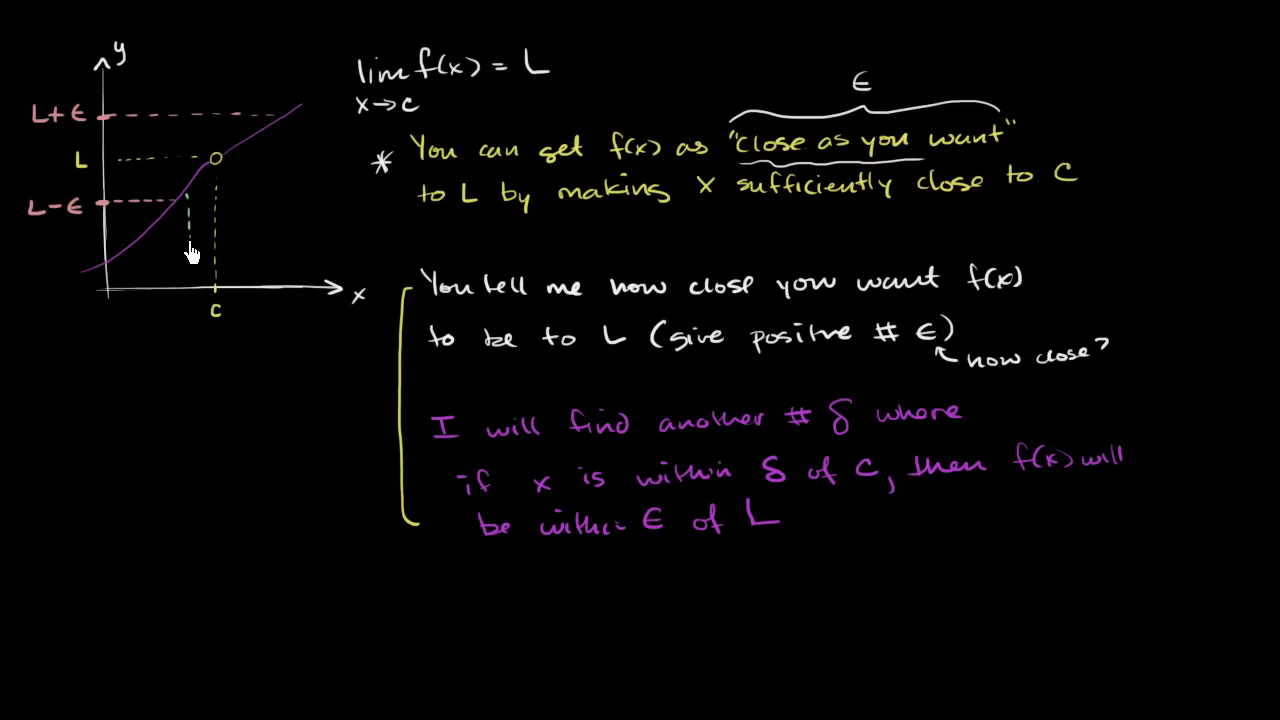 y
L+ϵ
L
L-ϵ
c
x
lim f(x) = L
x→c
ϵ
* You can get f(x) as "close as you want"
to L by making x sufficiently close to C
You tell me how close you want f(x)
to be to L (give positive # ϵ)
how close?
I will find another # δ where
if x is within δ of C, then f(x) will
be within ϵ of L